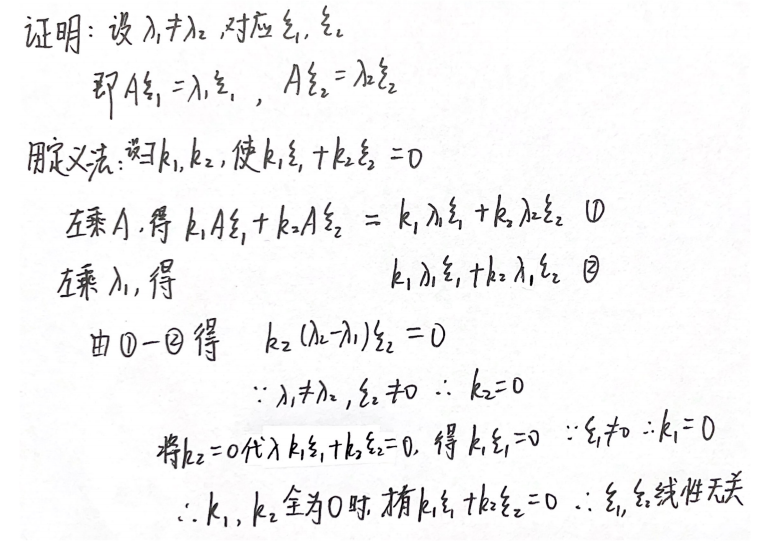 证明: 设 λ₁≠λ₂, 对应 ξ₁, ξ₂
即 Aξ₁=λ₁ξ₁, Aξ₂=λ₂ξ₂
用定义法: 设∃k₁,k₂, 使k₁ξ₁+k₂ξ₂=0
左乘A, 得 k₁Aξ₁+k₂Aξ₂ = k₁λ₁ξ₁+k₂λ₂ξ₂ ①
左乘 λ₁, 得 k₁λ₁ξ₁+k₂λ₁ξ₂ ②
由①-②得 k₂(λ₂-λ₁)ξ₂=0
∵ λ₁≠λ₂, ξ₂≠0 ∴ k₂=0
将k₂=0代入k₁ξ₁+k₂ξ₂=0, 得 k₁ξ₁=0 ∵ξ₁≠0 ∴k₁=0
∴ k₁, k₂ 全为0时, 才有k₁ξ₁+k₂ξ₂=0 ∴ ξ₁, ξ₂线性无关